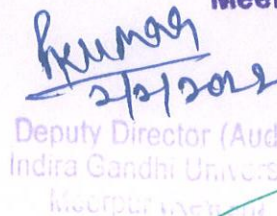 Meer
Rkumar
2/2/2022
Deputy Director (Aud
Indira Gandhi Univers
Meerpur